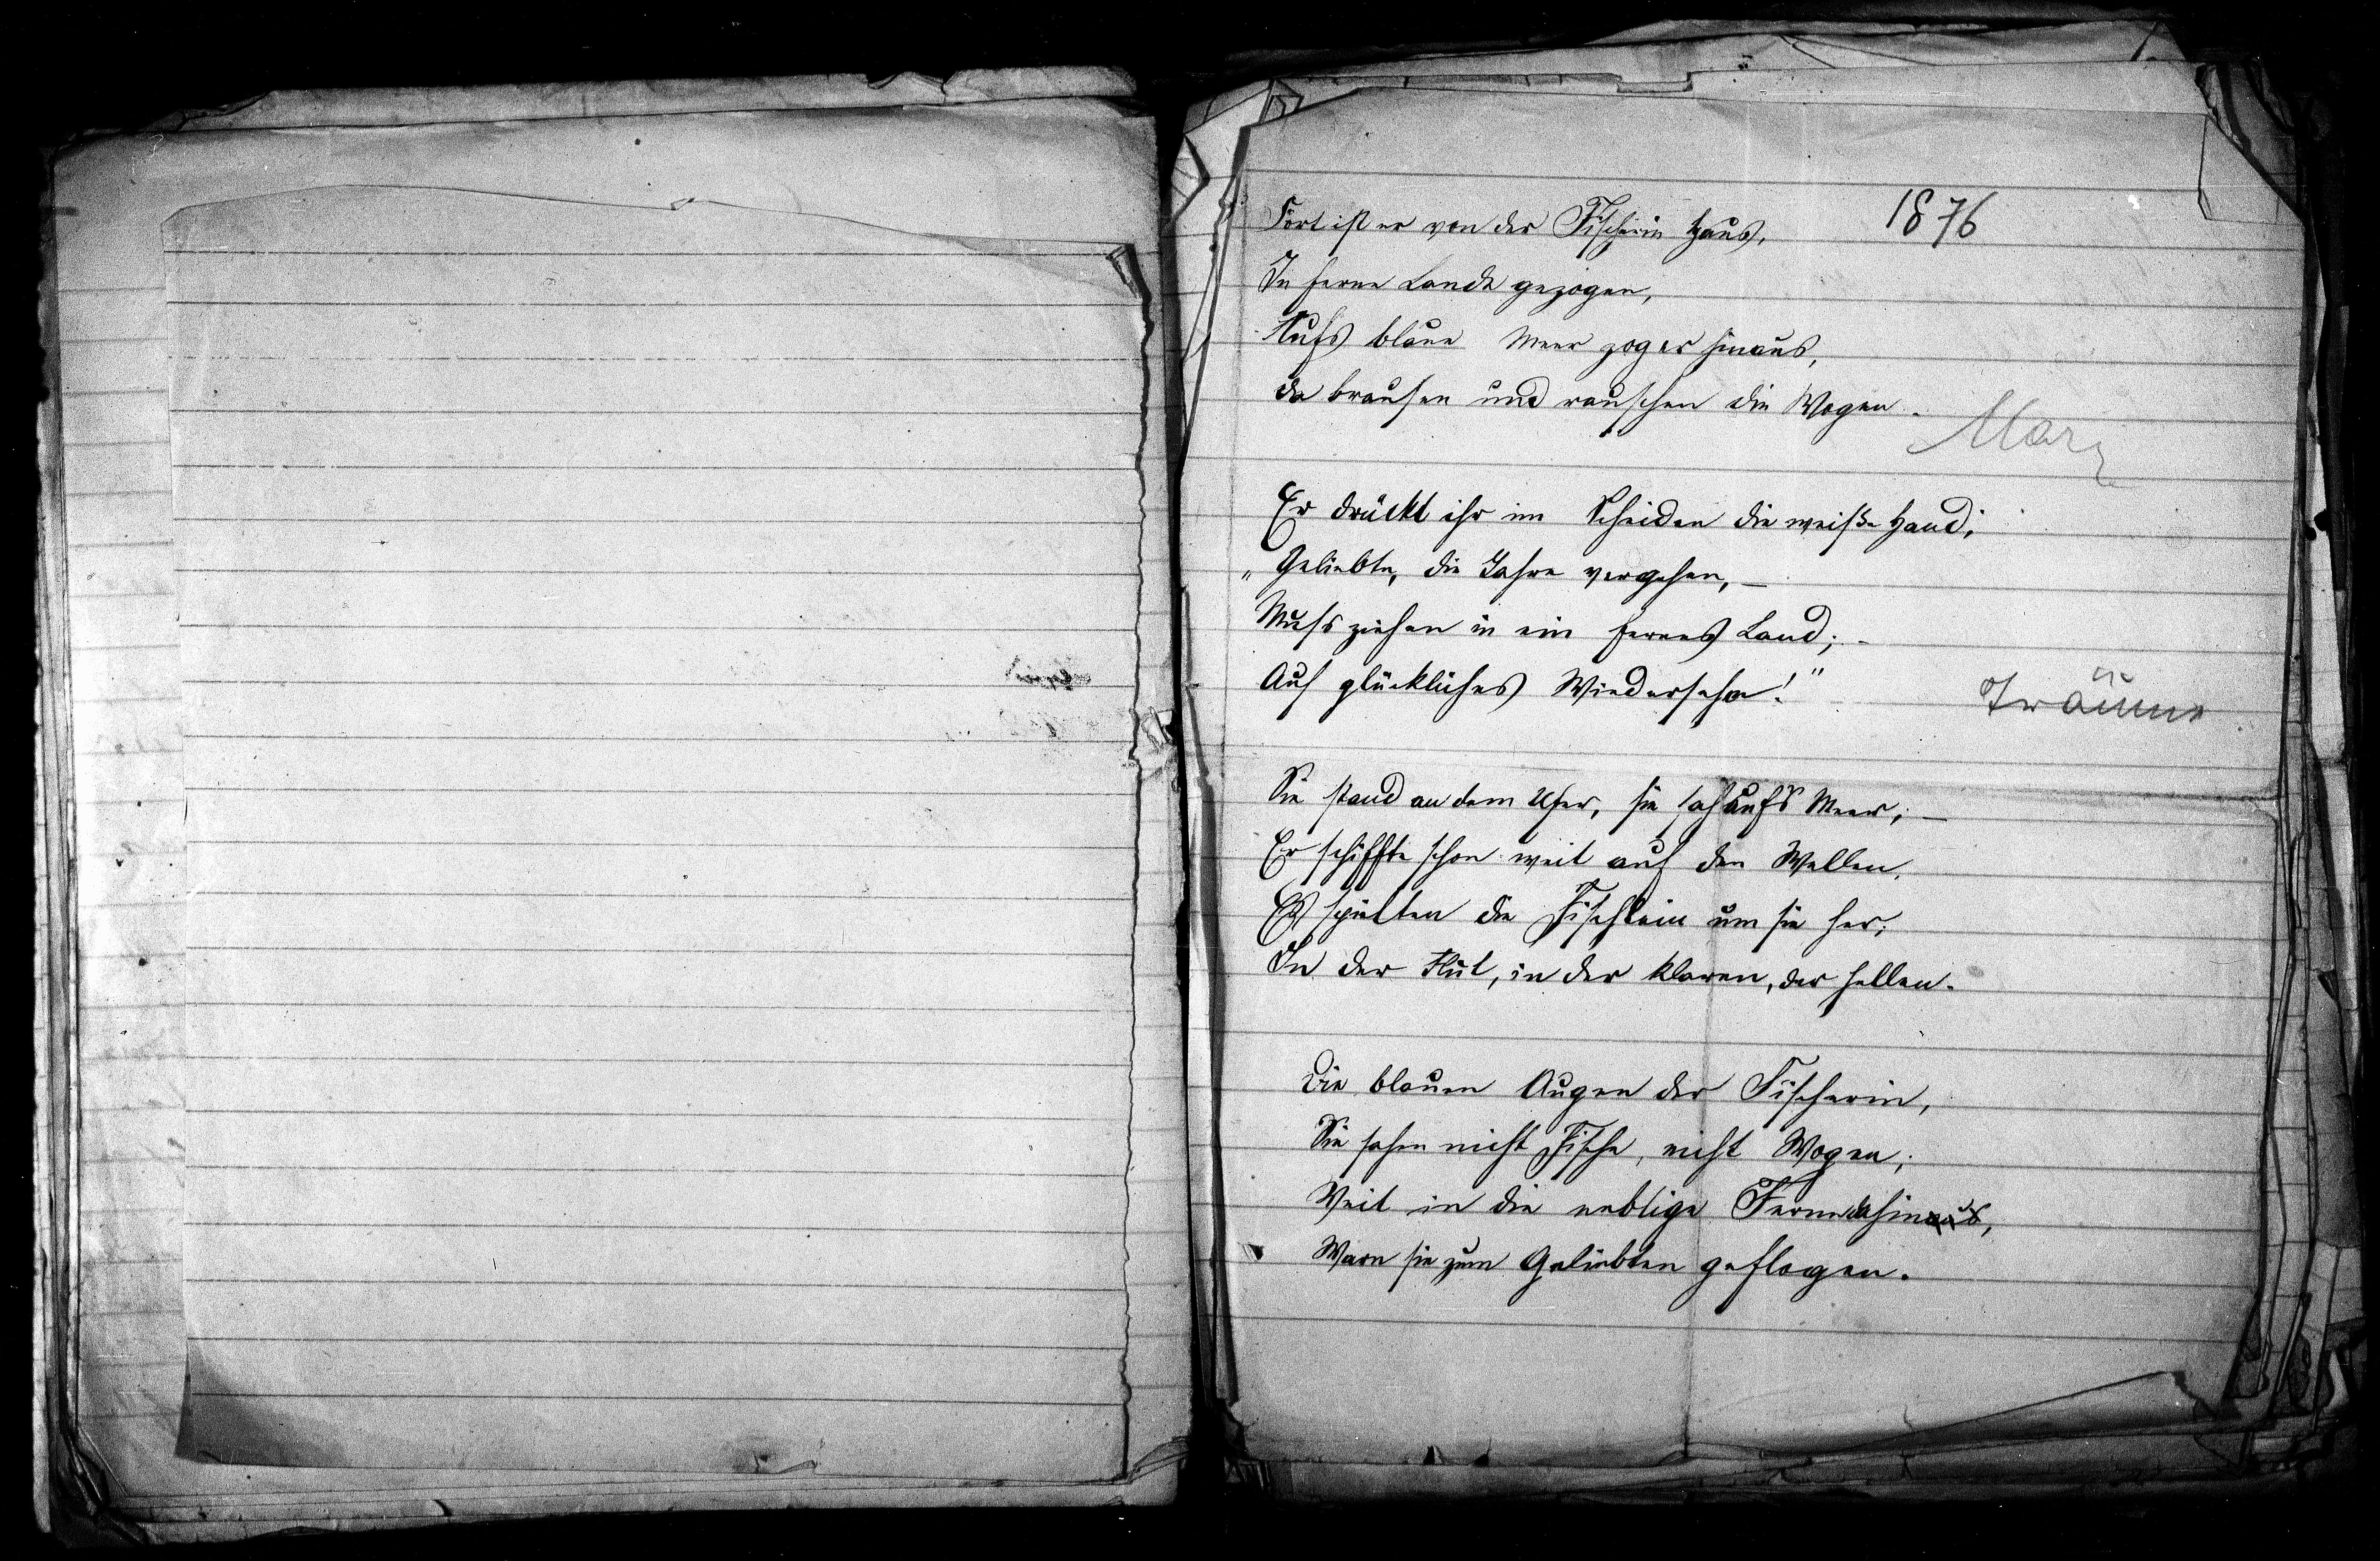 1876
Fort ist er von der Fischerin Haus,
In ferne Lande gezogen,
Aufs blaue Meer zog er hinaus,
da brausen und rauschen die Wogen.
März
Er drückt ihr im Scheiden die weiße Hand;
„Geliebte, die Jahre vergehen, —
Muss ziehen in ein fernes Land; -
Auf glückliches Wiedersehn!"
Träume
Sie stand an dem Ufer, sie sah aufs Meer; —
Er schiffte schon weit auf den Wellen,
Es spielten die Fischlein um sie her;
In der Flut, in der klaren, der hellen.
Die blauen Augen der Fischerin,
Sie sahen nicht Fische, nicht Wogen;
Weit in die neblige Ferne dahinaus,
Warn sie zum Geliebten geflogen.